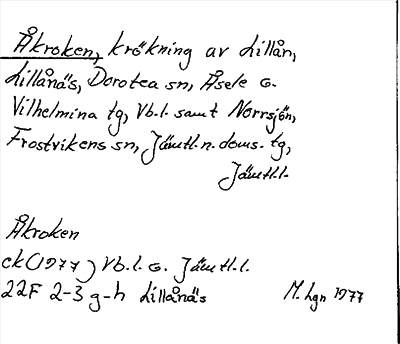 Åkroken, krökning av Lillån,
Lillånäs, Dorotea sn, Åsele o.
Vilhelmina tg, Vb.l. samt Norrsjön,
Frostvikens sn, Jämtl. n. doms. tg,
Jämtl.l.
Åkroken
ek (1977) Vb.l. o. Jämtl.l.
22F 2-3 g-h Lillånäs
M. Lgn 1977